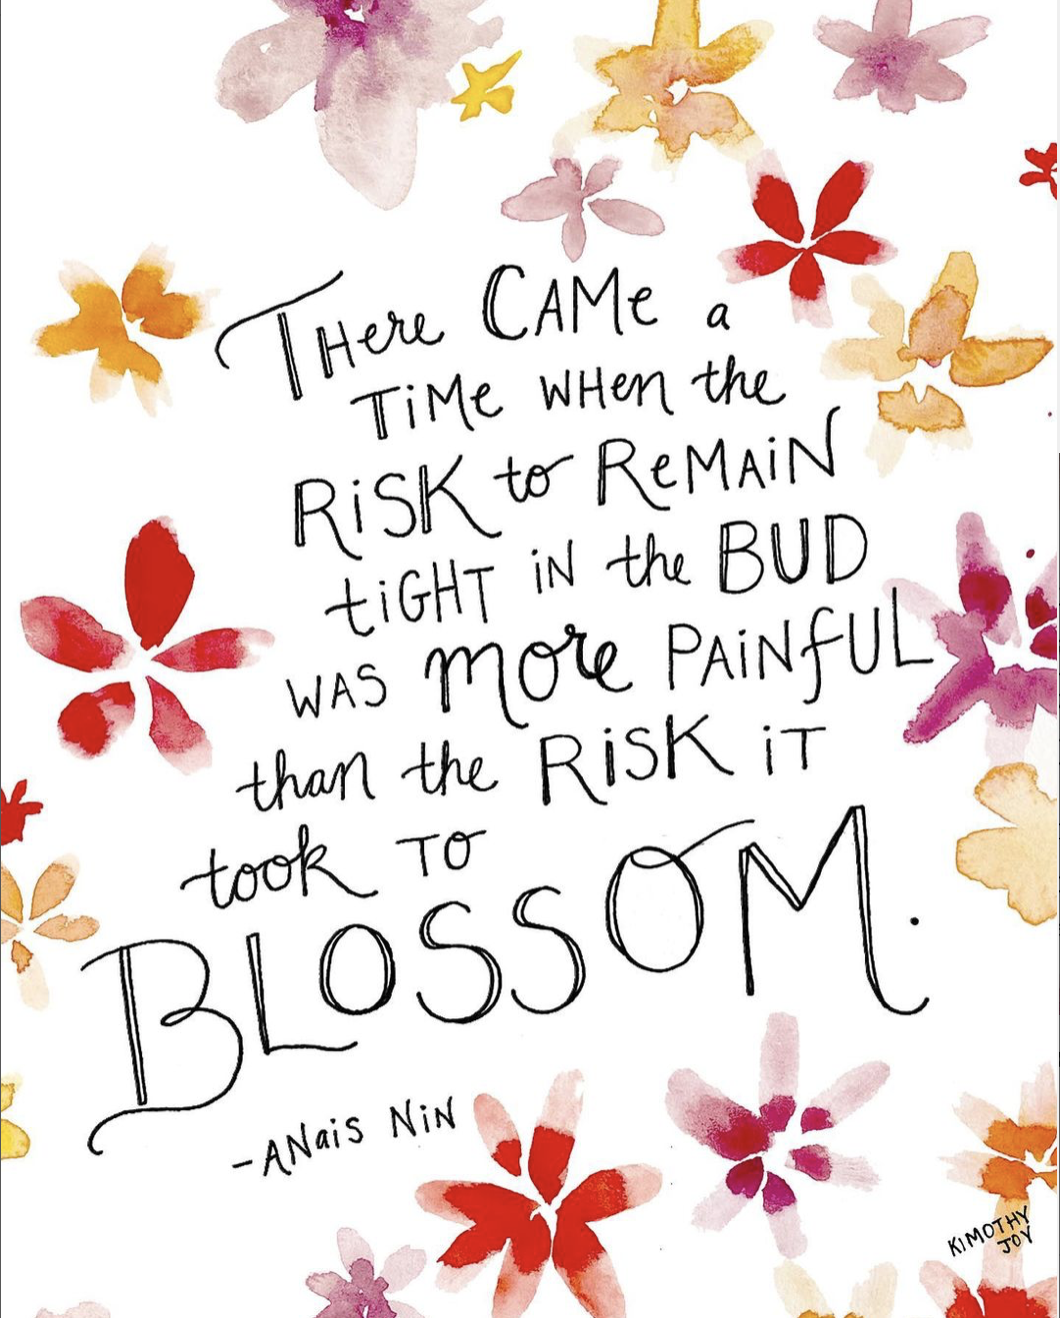 THere CAMe a
TiMe WHen the
RiSK to ReMAiN
tiGHT iN the BUD
WAS more PAiNfUL
than the RiSK iT
took TO
BLOSSOM.
-ANais NiN
KIMOTHY
JOY